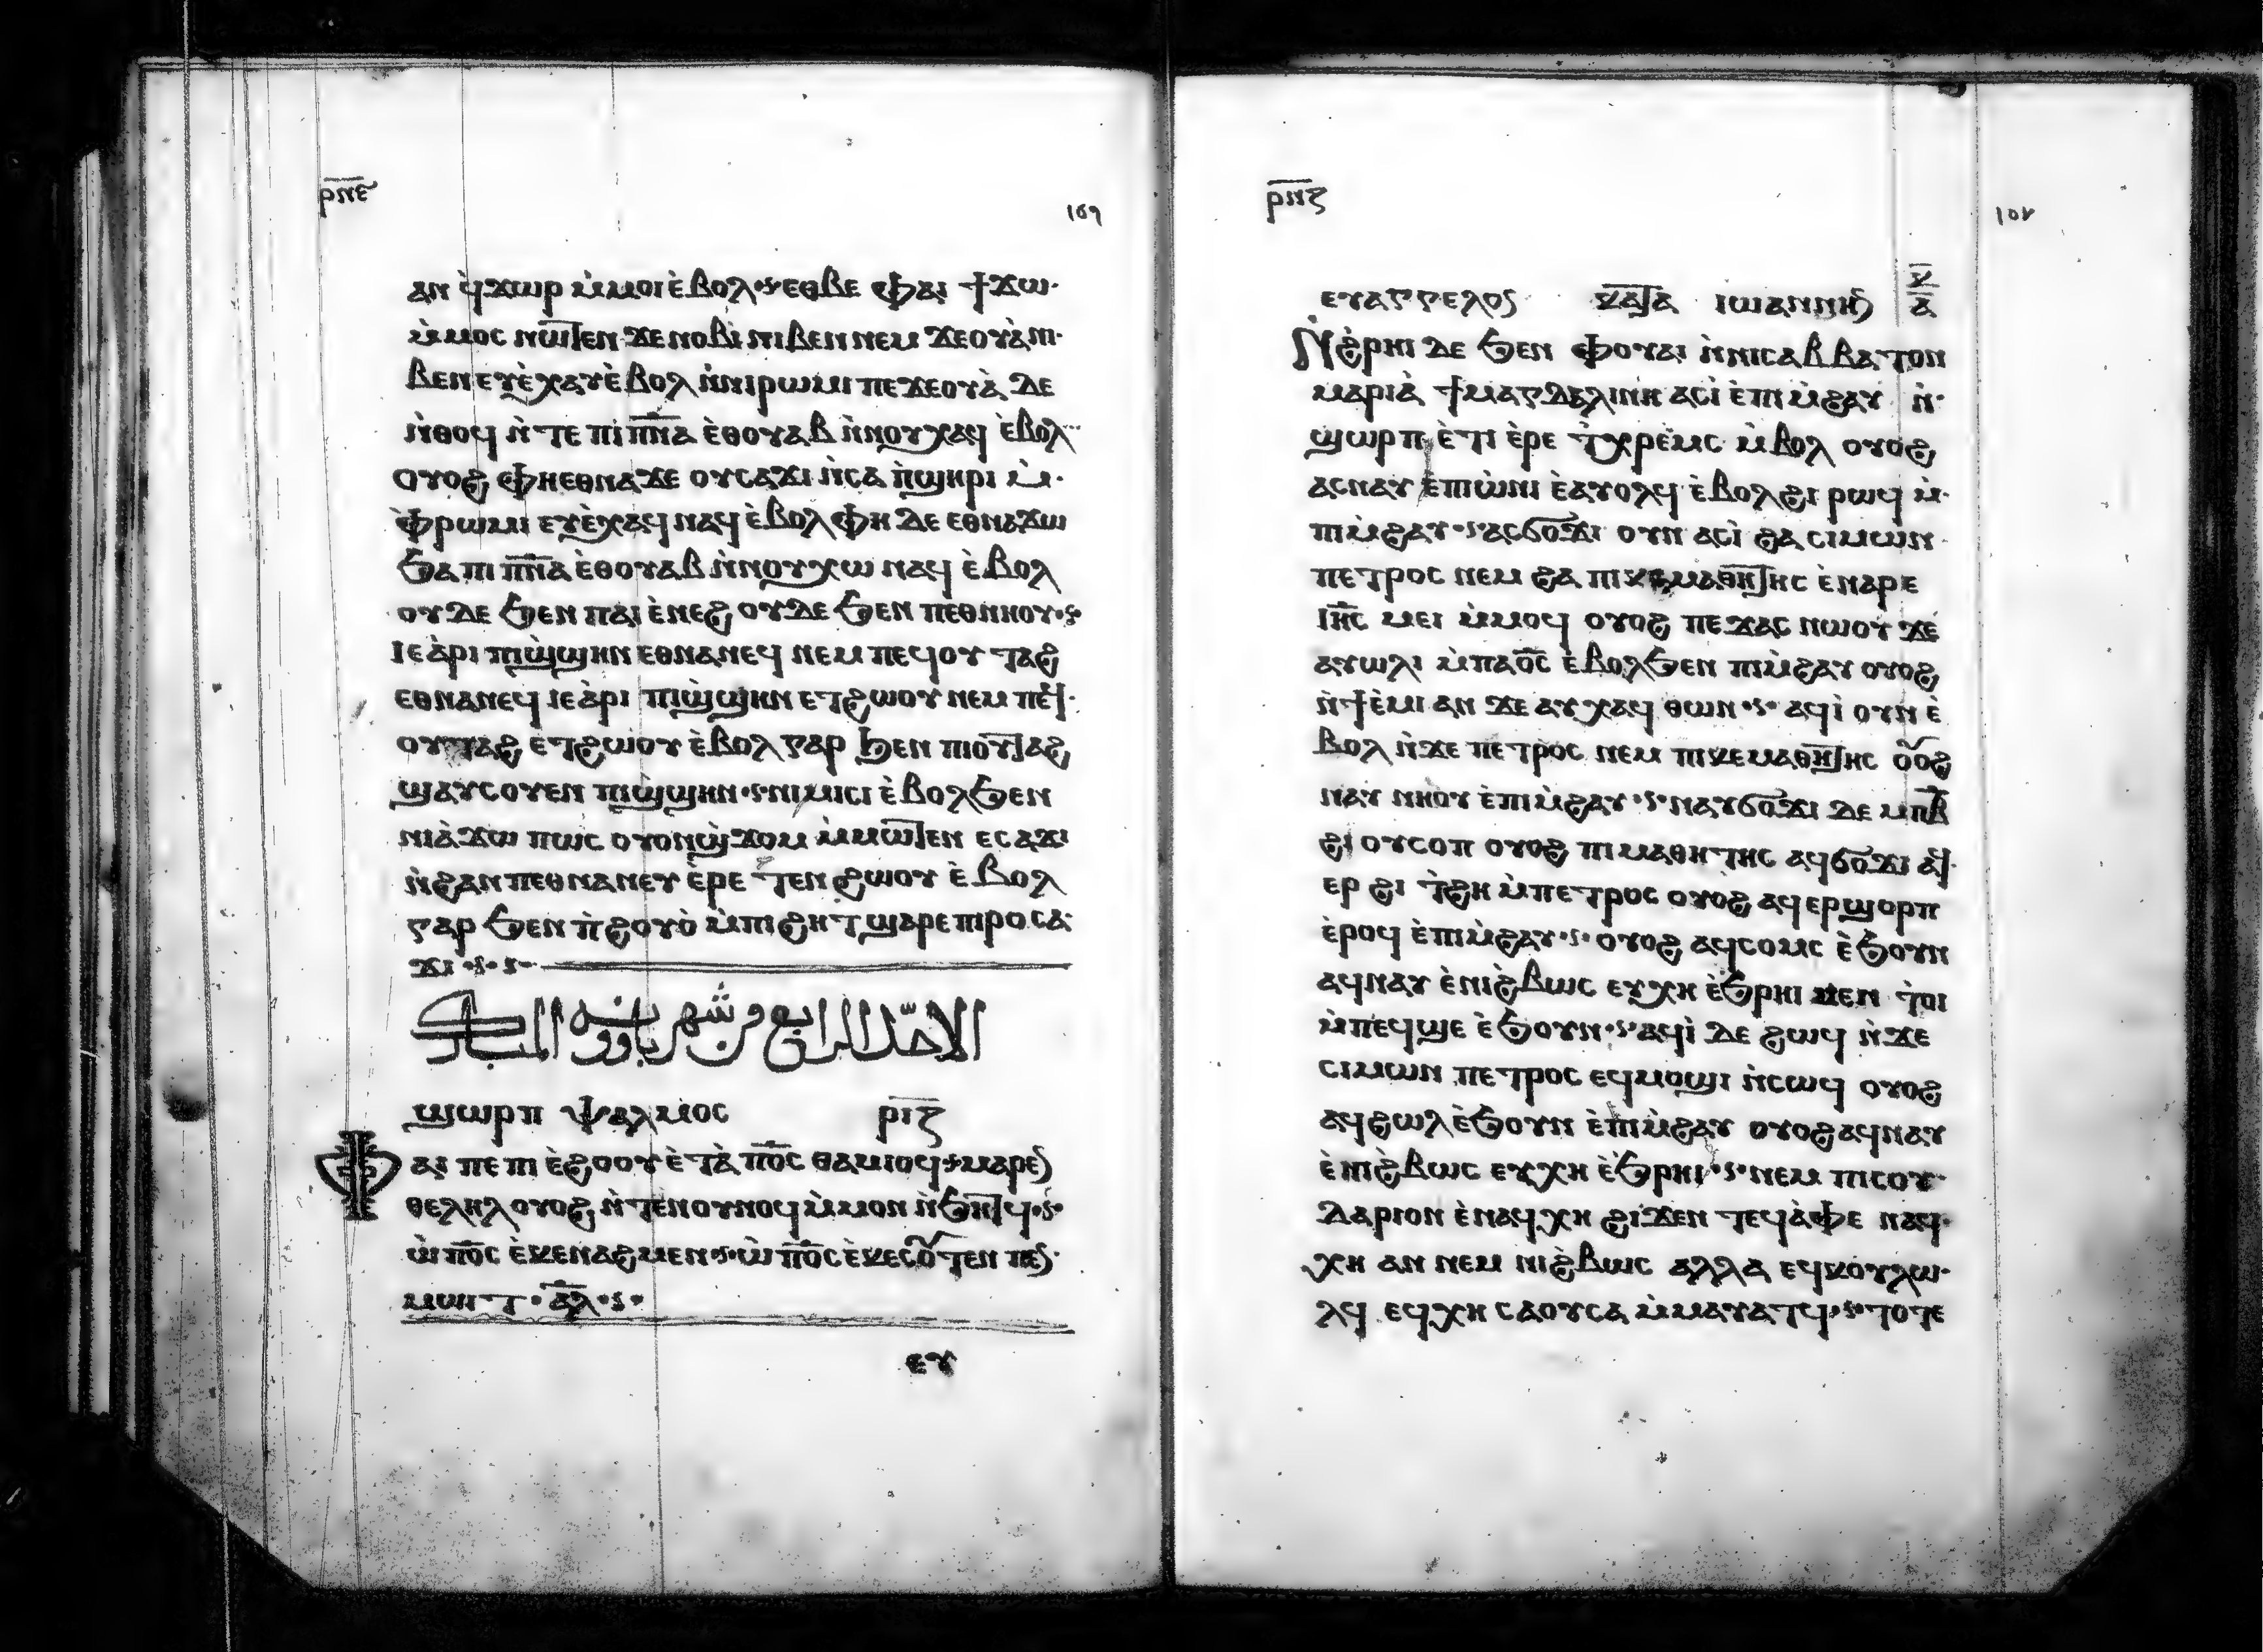 ⲣ̅ⲛ̅ⲉ̅
ⲁⲛ ϥ̀ϫⲱⲣ ⲙ̀ⲙⲟⲓ ⲉ̀ⲃⲟⲗ ⲉⲑⲃⲉ ⲫⲁⲓ ϯϫⲱ
ⲙ̀ⲙⲟⲥ ⲛⲱⲧⲉⲛ ϫⲉ ⲛⲟⲃⲓ ⲛⲓⲃⲉⲛ ⲛⲉⲙ ϫⲉⲟⲩⲁ̀ ⲛⲓ
ⲃⲉⲛ ⲉⲩⲉ̀ⲭⲁⲩ ⲉ̀ⲃⲟⲗ ⲛ̀ⲛⲓⲣⲱⲙⲓ ⲡⲉϫⲉⲟⲩⲁ̀ ⲇⲉ
ⲛ̀ⲑⲟϥ ⲛ̀ⲧⲉ ⲡⲓⲡ̅ⲛ̅ⲁ̅ ⲉ̀ⲑⲟⲩⲁⲃ ⲛ̀ⲛⲟⲩⲭⲁϥ ⲉ̀ⲃⲟⲗ
ⲟⲩⲟϩ ⲫⲏⲉⲑⲛⲁϫⲉ ⲟⲩⲥⲁϫⲓ ⲛ̀ⲥⲁ ⲡ̀ϣⲏⲣⲓ ⲙ̀
ⲫ̀ⲣⲱⲙⲓ ⲉⲩⲉ̀ⲭⲁϥ ⲛⲁϥ ⲉ̀ⲃⲟⲗ ⲫⲏ ⲇⲉ ⲉⲑⲛⲁϫⲱ
ϧⲁ ⲡⲓⲡ̅ⲛ̅ⲁ̅ ⲉ̀ⲑⲟⲩⲁⲃ ⲛ̀ⲛⲟⲩⲭⲱ ⲛⲁϥ ⲉ̀ⲃⲟⲗ
ⲟⲩⲇⲉ ϧⲉⲛ ⲡⲁⲓ ⲉ̀ⲛⲉϩ ⲟⲩⲇⲉ ϧⲉⲛ ⲡⲉⲑⲛⲏⲟⲩ
ⲓⲉ ⲁ̀ⲣⲓ ⲡⲓϣ̀ϣⲏⲛ ⲉⲑⲛⲁⲛⲉϥ ⲛⲉⲙ ⲡⲉϥⲟⲩⲧⲁϩ
ⲉⲑⲛⲁⲛⲉϥ ⲓⲉ ⲁ̀ⲣⲓ ⲡⲓϣ̀ϣⲏⲛ ⲉⲧϩⲱⲟⲩ ⲛⲉⲙ ⲡⲉϥ
ⲟⲩⲧⲁϩ ⲉⲧϩⲱⲟⲩ ⲉ̀ⲃⲟⲗ ⲅⲁⲣ ϧⲉⲛ ⲡⲓⲟⲩⲧⲁϩ
ϣⲁⲩⲥⲟⲩⲉⲛ ⲡⲓϣ̀ϣⲏⲛ ⲛⲓⲙⲓⲥⲓ ⲉ̀ⲃⲟⲗϧⲉⲛ
ⲛⲓⲁ̀ϫⲱ ⲡⲱⲥ ⲟⲩⲟⲛϣ̀ϫⲟⲙ ⲙ̀ⲙⲱⲧⲉⲛ ⲉⲥⲁϫⲓ
ⲛ̀ϩⲁⲛⲡⲉⲑⲛⲁⲛⲉⲩ ⲉ̀ⲣⲉ ⲧⲉⲛϩⲱⲟⲩ ⲉ̀ⲃⲟⲗ
ⲅⲁⲣ ϧⲉⲛ ⲡ̀ϩⲟⲩⲟ̀ ⲙ̀ⲡⲓϩⲏⲧ ϣⲁⲣⲉ ⲡⲓⲣⲟ ⲥⲁ
ϫⲓ
الاحد الرابع من شهر باوونه المبارك
ϣⲱⲣⲡ ⲯⲁⲗⲙⲟⲥ ⲣ̅ⲓ̅ⲍ̅
ⲫⲁⲓ ⲡⲉ ⲡⲓⲉ̀ϩⲟⲟⲩ ⲉ̀ⲧⲁ ⲡ̅ⲟ̅ⲥ̅ ⲑⲁⲙⲓⲟϥ ⲙⲁⲣⲉ
ⲑⲉⲗⲏⲗ ⲟⲩⲟϩ ⲛ̀ⲧⲉⲛⲟⲩⲛⲟϥ ⲙ̀ⲙⲟⲛ ⲛ̀ϧⲏⲧϥ
ⲱ̀ ⲡ̅ⲟ̅ⲥ̅ ⲉ̀ⲕⲉⲛⲁϩⲙⲉⲛ ⲱ̀ ⲡ̅ⲟ̅ⲥ̅ ⲉ̀ⲕⲉⲥⲟⲩⲧⲉⲛ ⲡⲉⲛ
ⲙⲱⲓⲧ ⲁ̅ⲗ̅
ⲉⲩ
ⲣ̅ⲛ̅ⲋ̅
ⲉⲩⲁⲅⲅⲉⲗⲟⲥ ⲕⲁⲧⲁ ⲓⲱⲁⲛⲛⲏⲥ ⲕ̅ ⲁ̅
ⲛ̀ϩ̀ⲣⲏⲓ ⲇⲉ ϧⲉⲛ ⲫⲟⲩⲁⲓ ⲛ̀ⲛⲓⲥⲁⲃⲃⲁⲧⲟⲛ
ⲙⲁⲣⲓⲁ̀ ϯⲙⲁⲅⲇⲁⲗⲓⲛⲏ ⲁⲥⲓ̀ ⲉ̀ⲡⲓⲙ̀ϩⲁⲩ ⲛ̀
ϣⲱⲣⲡ ⲉ̀ⲧⲓ ⲉ̀ⲣⲉ ⲧ̀ⲭⲣⲉⲙⲥ ⲙ̀ⲃⲟⲗ ⲟⲩⲟϩ
ⲁⲥⲛⲁⲩ ⲉ̀ⲡⲓⲱ̀ⲛⲓ ⲉ̀ⲁⲩⲟⲗϥ ⲉ̀ⲃⲟⲗϩⲓ ⲣⲱϥ ⲙ̀
ⲡⲓⲙ̀ϩⲁⲩ ⲁⲥϭⲟϫⲓ ⲟⲩⲛ ⲁⲥⲓ̀ ϩⲁ ⲥⲓⲙⲱⲛ
ⲡⲉⲧⲣⲟⲥ ⲛⲉⲙ ϩⲁ ⲡⲓⲕⲉⲙⲁⲑⲏⲧⲏⲥ ⲉ̀ⲛⲁⲣⲉ
ⲓ̅ⲏ̅ⲥ̅ ⲙⲉⲓ ⲙ̀ⲙⲟϥ ⲟⲩⲟϩ ⲡⲉϫⲁⲥ ⲛⲱⲟⲩ ϫⲉ
ⲁⲩⲱⲗⲓ ⲙ̀ⲡⲁⲟ̅ⲥ̅ ⲉ̀ⲃⲟⲗϧⲉⲛ ⲡⲓⲙ̀ϩⲁⲩ ⲟⲩⲟϩ
ⲛ̀ϯⲉ̀ⲙⲓ ⲁⲛ ϫⲉ ⲁⲩⲭⲁϥ ⲑⲱⲛ ⲁϥⲓ̀ ⲟⲩⲛ ⲉ̀
ⲃⲟⲗ ⲛ̀ϫⲉ ⲡⲉⲧⲣⲟⲥ ⲛⲉⲙ ⲡⲓⲕⲉⲙⲁⲑⲏⲧⲏⲥ ⲟⲩⲟϩ
ⲛⲁⲩ ⲛⲏⲟⲩ ⲉ̀ⲡⲓⲙ̀ϩⲁⲩ ⲛⲁⲩϭⲟϫⲓ ⲇⲉ ⲙⲡⲃ̅
ϩⲓ ⲟⲩⲥⲟⲡ ⲟⲩⲟϩ ⲡⲓⲙⲁⲑⲏⲧⲏⲥ ⲁϥϭⲟϫⲓ ⲁϥ
ⲉⲣ ϩⲓ ⲧ̀ϩⲏ ⲙ̀ⲡⲉⲧⲣⲟⲥ ⲟⲩⲟϩ ⲁϥⲉⲣϣⲟⲣⲡ
ⲉ̀ⲣⲟϥ ⲉ̀ⲡⲓⲙ̀ϩⲁⲩ ⲟⲩⲟϩ ⲁϥⲥⲟⲙⲥ ⲉ̀ϧⲟⲩⲛ
ⲁϥⲛⲁⲩ ⲉ̀ⲛⲓϩ̀ⲃⲱⲥ ⲉⲩⲭⲏ ⲉ̀ϧⲣⲏⲓ ⲙⲉⲛ ⲧ̀ⲟⲓ
ⲙ̀ⲡⲉϥϣⲉ ⲉ̀ϧⲟⲩⲛ ⲁϥⲓ̀ ⲇⲉ ϩⲱϥ ⲛ̀ϫⲉ
ⲥⲓⲙⲱⲛ ⲡⲉⲧⲣⲟⲥ ⲉϥⲙⲟϣⲓ ⲛ̀ⲥⲱϥ ⲟⲩⲟϩ
ⲁϥϩⲱⲗ ⲉ̀ϧⲟⲩⲛ ⲉ̀ⲡⲓⲙ̀ϩⲁⲩ ⲟⲩⲟϩ ⲁϥⲛⲁⲩ
ⲉ̀ⲛⲓϩ̀ⲃⲱⲥ ⲉⲩⲭⲏ ⲉ̀ϧⲣⲏⲓ ⲛⲉⲙ ⲡⲓⲥⲟⲩ
ⲇⲁⲣⲓⲟⲛ ⲉ̀ⲛⲁϥⲭⲏ ϩⲓϫⲉⲛ ⲧⲉϥⲁ̀ⲫⲉ ⲛⲁϥ
ⲭⲏ ⲁⲛ ⲛⲉⲙ ⲛⲓϩ̀ⲃⲱⲥ ⲁⲗⲗⲁ ⲉϥⲕⲟⲩⲗⲱ
ⲗϥ ⲉϥⲭⲏ ⲥⲁⲟⲩⲥⲁ ⲙ̀ⲙⲁⲩⲁⲧϥ ⲧⲟⲧⲉ